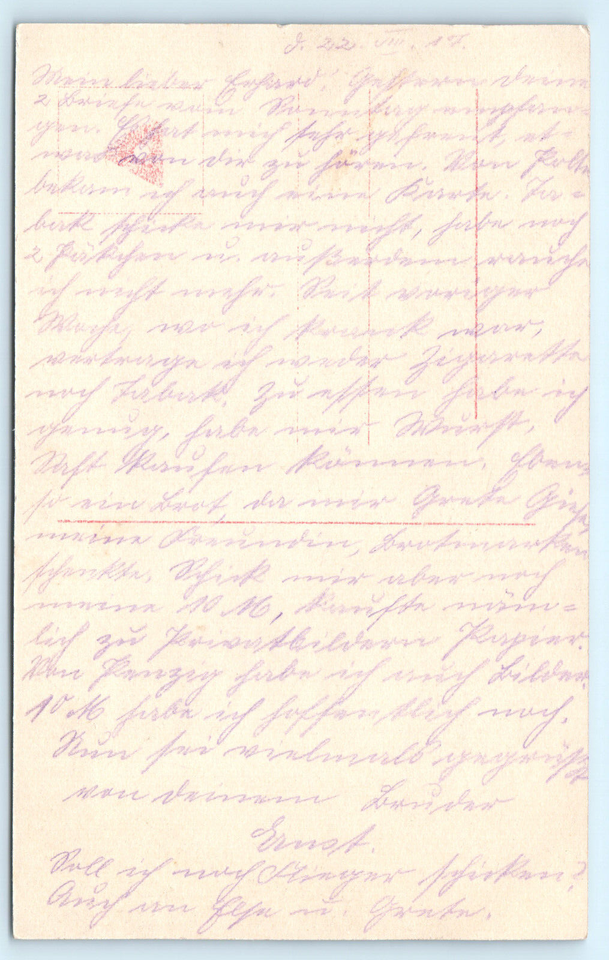 d. 22. VIII. 17.
Mein lieber Erhard! Gestern deine
2 Briefe vom Sonntag empfan-
gen. Hat mich sehr gefreut, et-
was von dir zu hören. Von Polte
bekam ich auch eine Karte. Ta-
bak schicke mir nicht, habe noch
2 Päkchen u. außerdem rauche
ich nicht mehr. Seit voriger
Woche, wo ich krank war,
vertrage ich weder Zigarette
noch Tabak. Zu essen habe ich
genug, habe mir Wurst,
Saft kaufen können. Eben-
so ein Brot, da mir Grete Giese,
meine Freundin, Brotmarken
schenkte. Schick mir aber noch
meine 10 M, kaufte näm-
lich zu Privatbildern Papier.
Von Penzig habe ich auch Bilder.
10 M habe ich hoffentlich noch.
Nun sei vielmals gegrüßt
von deinem Bruder
Ernst.
Soll ich noch Flieger schicken?
Auch an Else u. Grete.